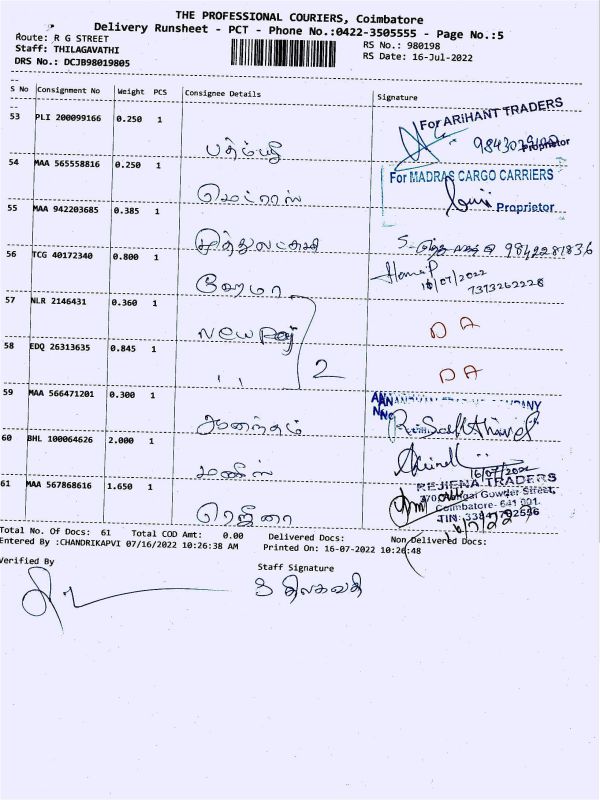 THE PROFESSIONAL COURIERS, Coimbatore
Delivery Runsheet - PCT - Phone No.:0422-3505555 - Page No.:5
Route: R G STREET
RS No.: 980198
Staff: THILAGAVATHI
RS Date: 16-Jul-2022
DRS No.: DCJB98019805
S No Consignment No Weight PCS Consignee Details Signature
53 PLI 200099166 0.250 1
For ARIHANT TRADERS
Proprietor
54 MAA 565558816 0.250 1 மெட்ராஸ்
For MADRAS CARGO CARRIERS
Proprietor
55 MAA 942203685 0.385 1 முத்துலட்சுமி
9842281836
56 TCG 40172340 0.800 1 ஹேமா
Hema P
16/07/2022
7373262228
57 NLR 2146431 0.360 1 New
DA
58 EDQ 26313635 0.845 1 " 2
DA
59 MAA 566471201 0.300 1 ஆனந்தம்
60 BHL 100064626 2.000 1 மணிஸ்
16/07/2022
61 MAA 567868616 1.650 1 ரெஜினா
REJIENA TRADERS
Gowder Street,
Coimbatore- 641 001.
Total No. Of Docs: 61 Total COD Amt: 0.00 Delivered Docs: Non Delivered Docs:
Entered By :CHANDRIKAPVI 07/16/2022 10:26:38 AM Printed On: 16-07-2022 10:26:48
Verified By
Staff Signature
தி திலகவதி